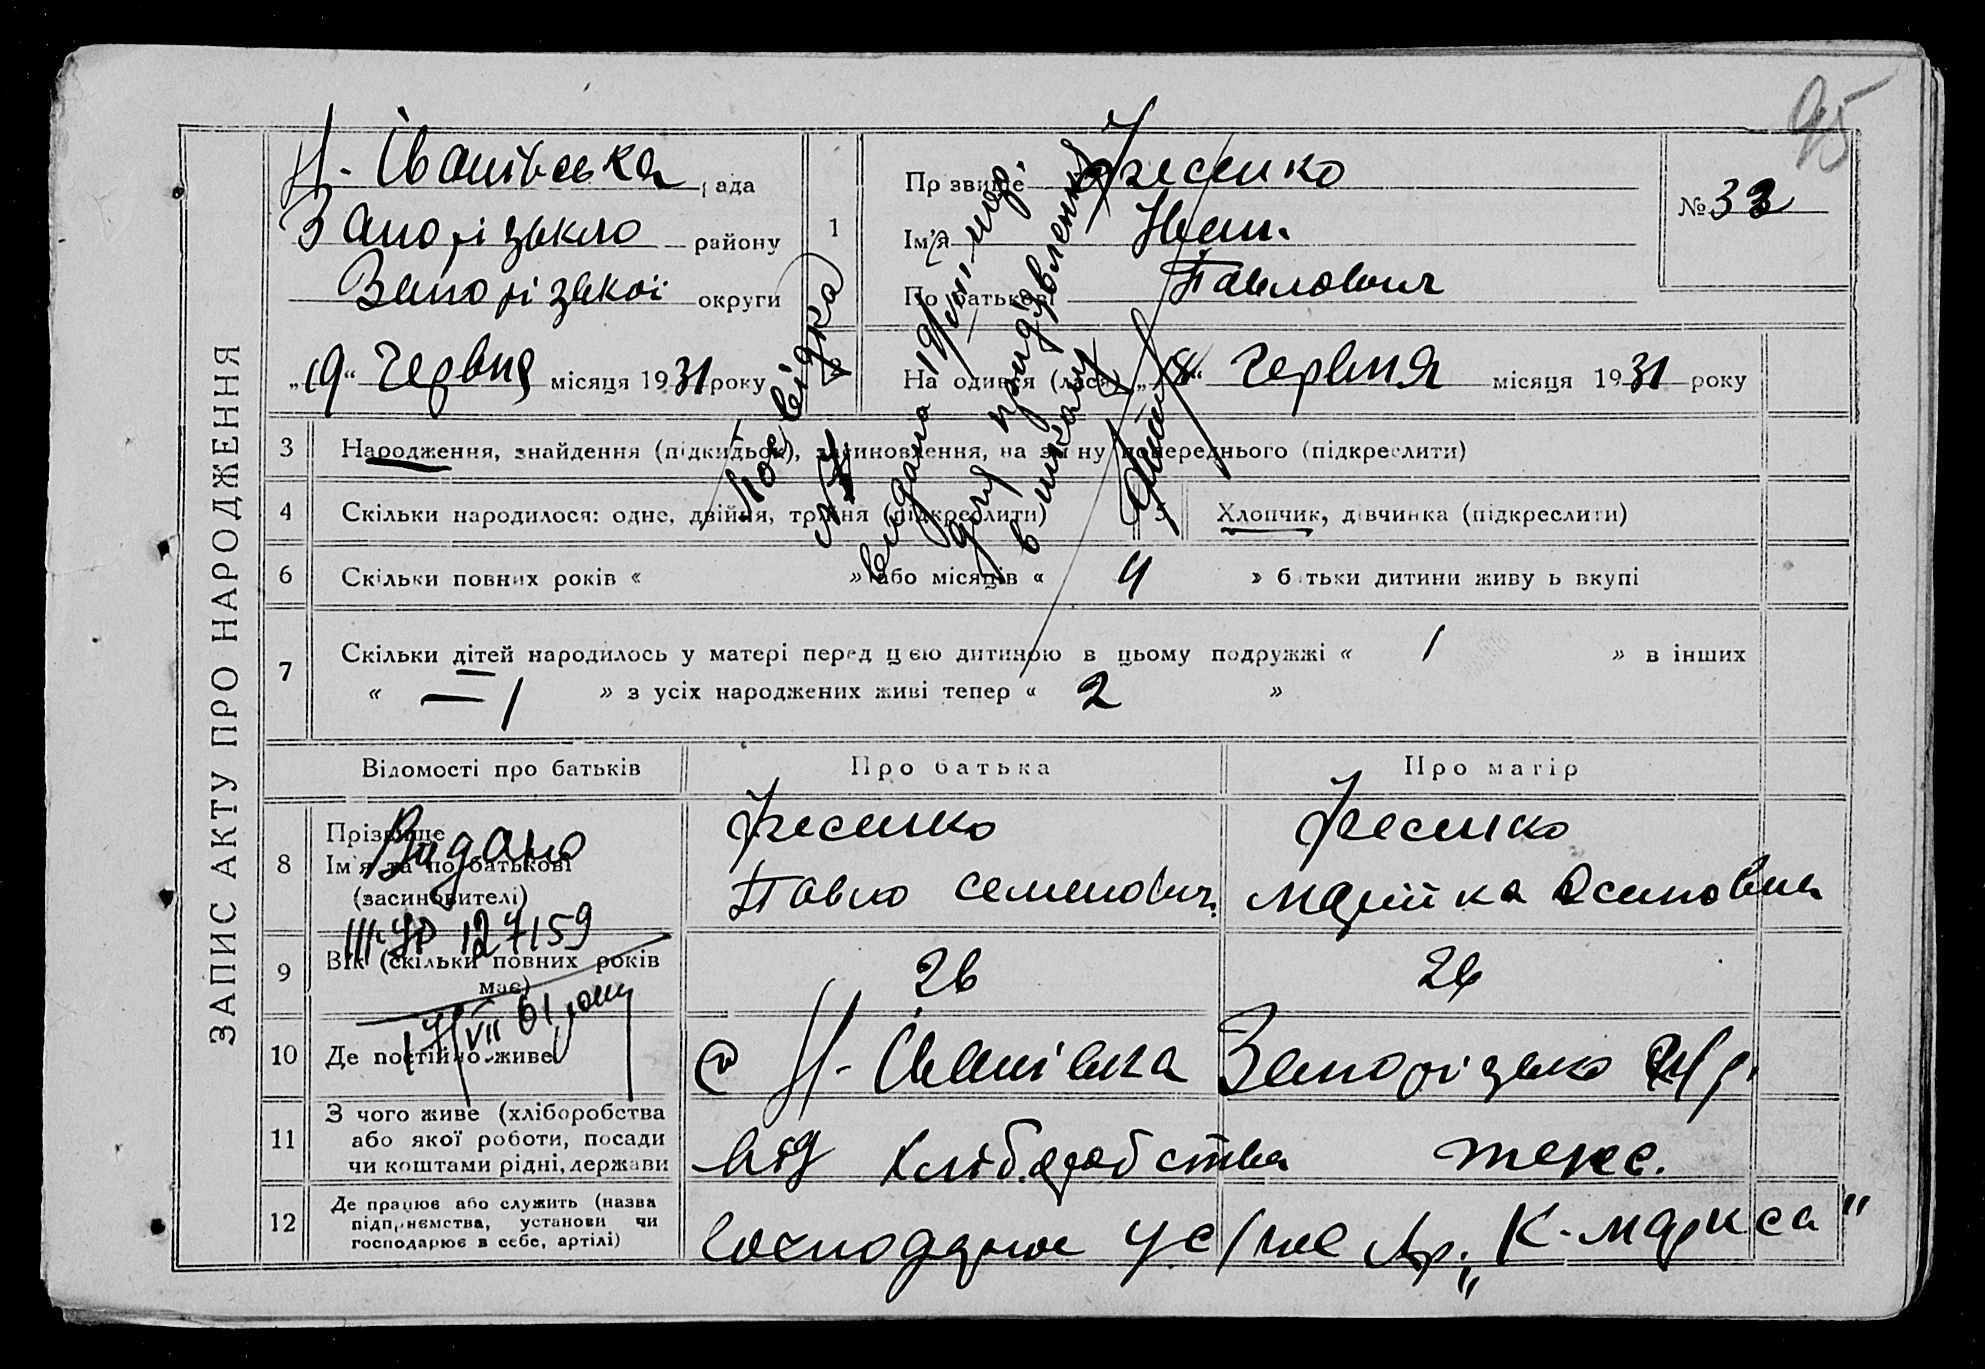 95
ЗАПИС АКТУ ПРО НАРОДЖЕННЯ
Н. Іванівська рада
Запорізького району
Запорізької округи
„19“ Червня місяця 1931 року
1
Прізвище Фесенко
Ім'я Іван.
По батькові Павлович
№ 33
На одився (лася) „18“ Червня місяця 1931 року
Посвідка
видана 19
для пред'явлення
в школу
3 Народження, знайдення (підкидьок), засиновлення, на зміну попереднього (підкреслити)
4 Скільки народилося: одне, двійня, трійня (підкреслити)
5 Хлопчик, дівчинка (підкреслити)
6 Скільки повних років « » або місяців « 4 » батьки дитини живуть вкупі
7 Скільки дітей народилось у матері перед цією дитиною в цьому подружжі « 1 » в інших
« — 1 » з усіх народжених живі тепер « 2 »
Відомості про батьків Про батька Про матір
8 Прізвище
Ім'я та по батькові
(засиновителі)
Фесенко
Павло Семенович.
Фесенко
Марійка Осиповна
Видано
III-УР 127159
17/VII 61 року
9 Вік (скільки повних років
має)
26 26
10 Де постійно живе
с Н-Іванівка Запорізько
11 З чого живе (хліборобства
або якої роботи, посади
чи коштами рідні, держави
від хліборобства теже.
12 Де працює або служить (назва
підприємства, установи чи
господарює в себе, артілі)
Господарює у с/гос Ар. „К-Маркса“